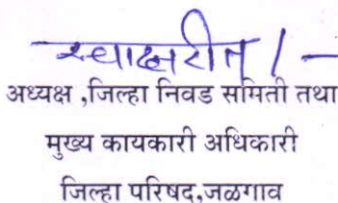 स्वाक्षरीत /-
अध्यक्ष ,जिल्हा निवड समिती तथा
मुख्य कायकारी अधिकारी
जिल्हा परिषद,जळगाव